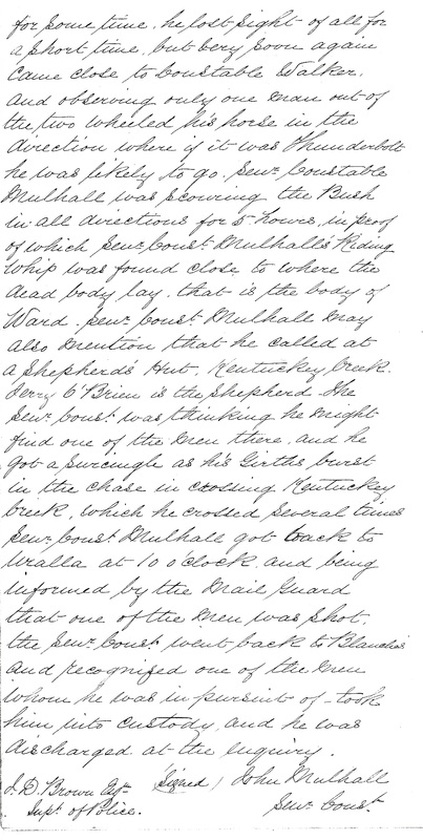 for some time, he lost sight of all for
a short time, but very soon again
came close to Constable Walker.
and observing only one man out of
the two wheeled his horse in the
direction where if it was Thunderbolt
he was likely to go. Senr. Constable
Mulhall was scouring the Bush
in all directions for 5 hours, in proof
of which Senr. Const. Mulhall's Riding
Whip was found close to where the
dead body lay. that is the body of
Ward. Senr. Const. Mulhall may
also mention that he called at
a Shepherds Hut, Kentuckey Creek.
Jerry O'Brien is the Shepherd. The
Senr. Const. was thinking he might
find one of the men there. and he
got a surcingle as his Girths burst
in the chase in crossing Kentuckey
Creek, which he crossed several times
Senr. Const Mulhall got back to
Uralla at 10 o'clock. and being
informed by the Mail Guard
that one of the men was shot.
the Senr. Const. went back to Blanches
and recognized one of the men
whom he was in pursuit of - took
him into custody, and he was
discharged at the enquiry.
J. D. Brown Esqr. (Signed) John Mulhall
Supt. of Police. Senr. Const.